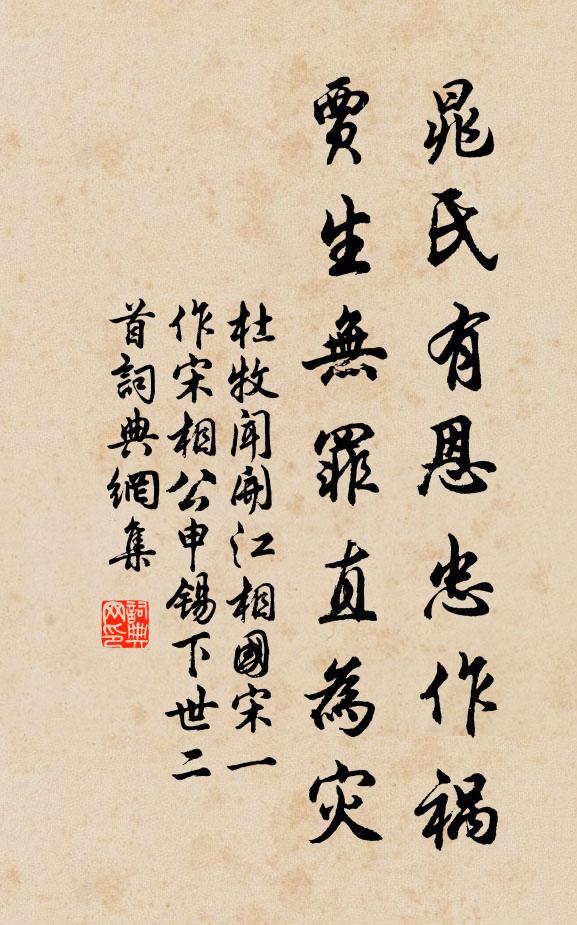 晁氏有恩忠作禍
賈生無罪直為灾
杜牧聞開江相國宋一
作宋相公申錫下世二
首詞典網集
詞典网印